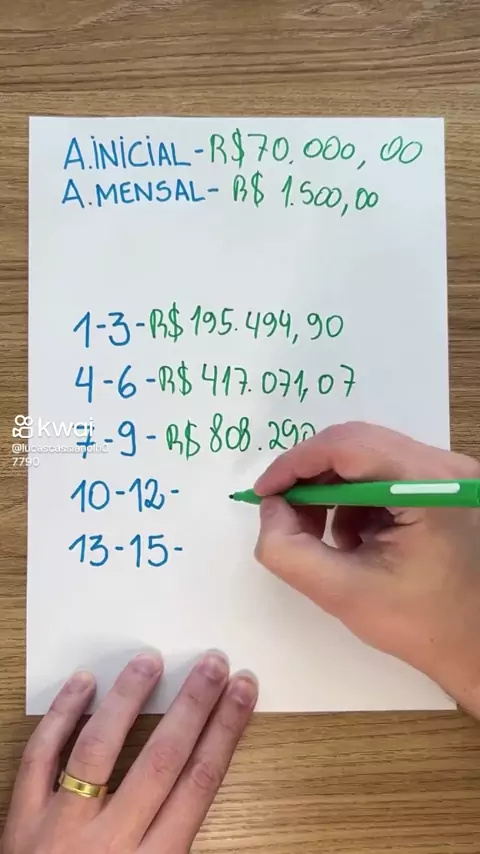 A.INICIAL - R$70.000,00
A.MENSAL - R$ 1.500,00
1-3 - R$ 195.494,90
4-6 - R$ 417.071,07
kwai
7-9 - R$ 808.290
7790
10-12 -
13-15 -